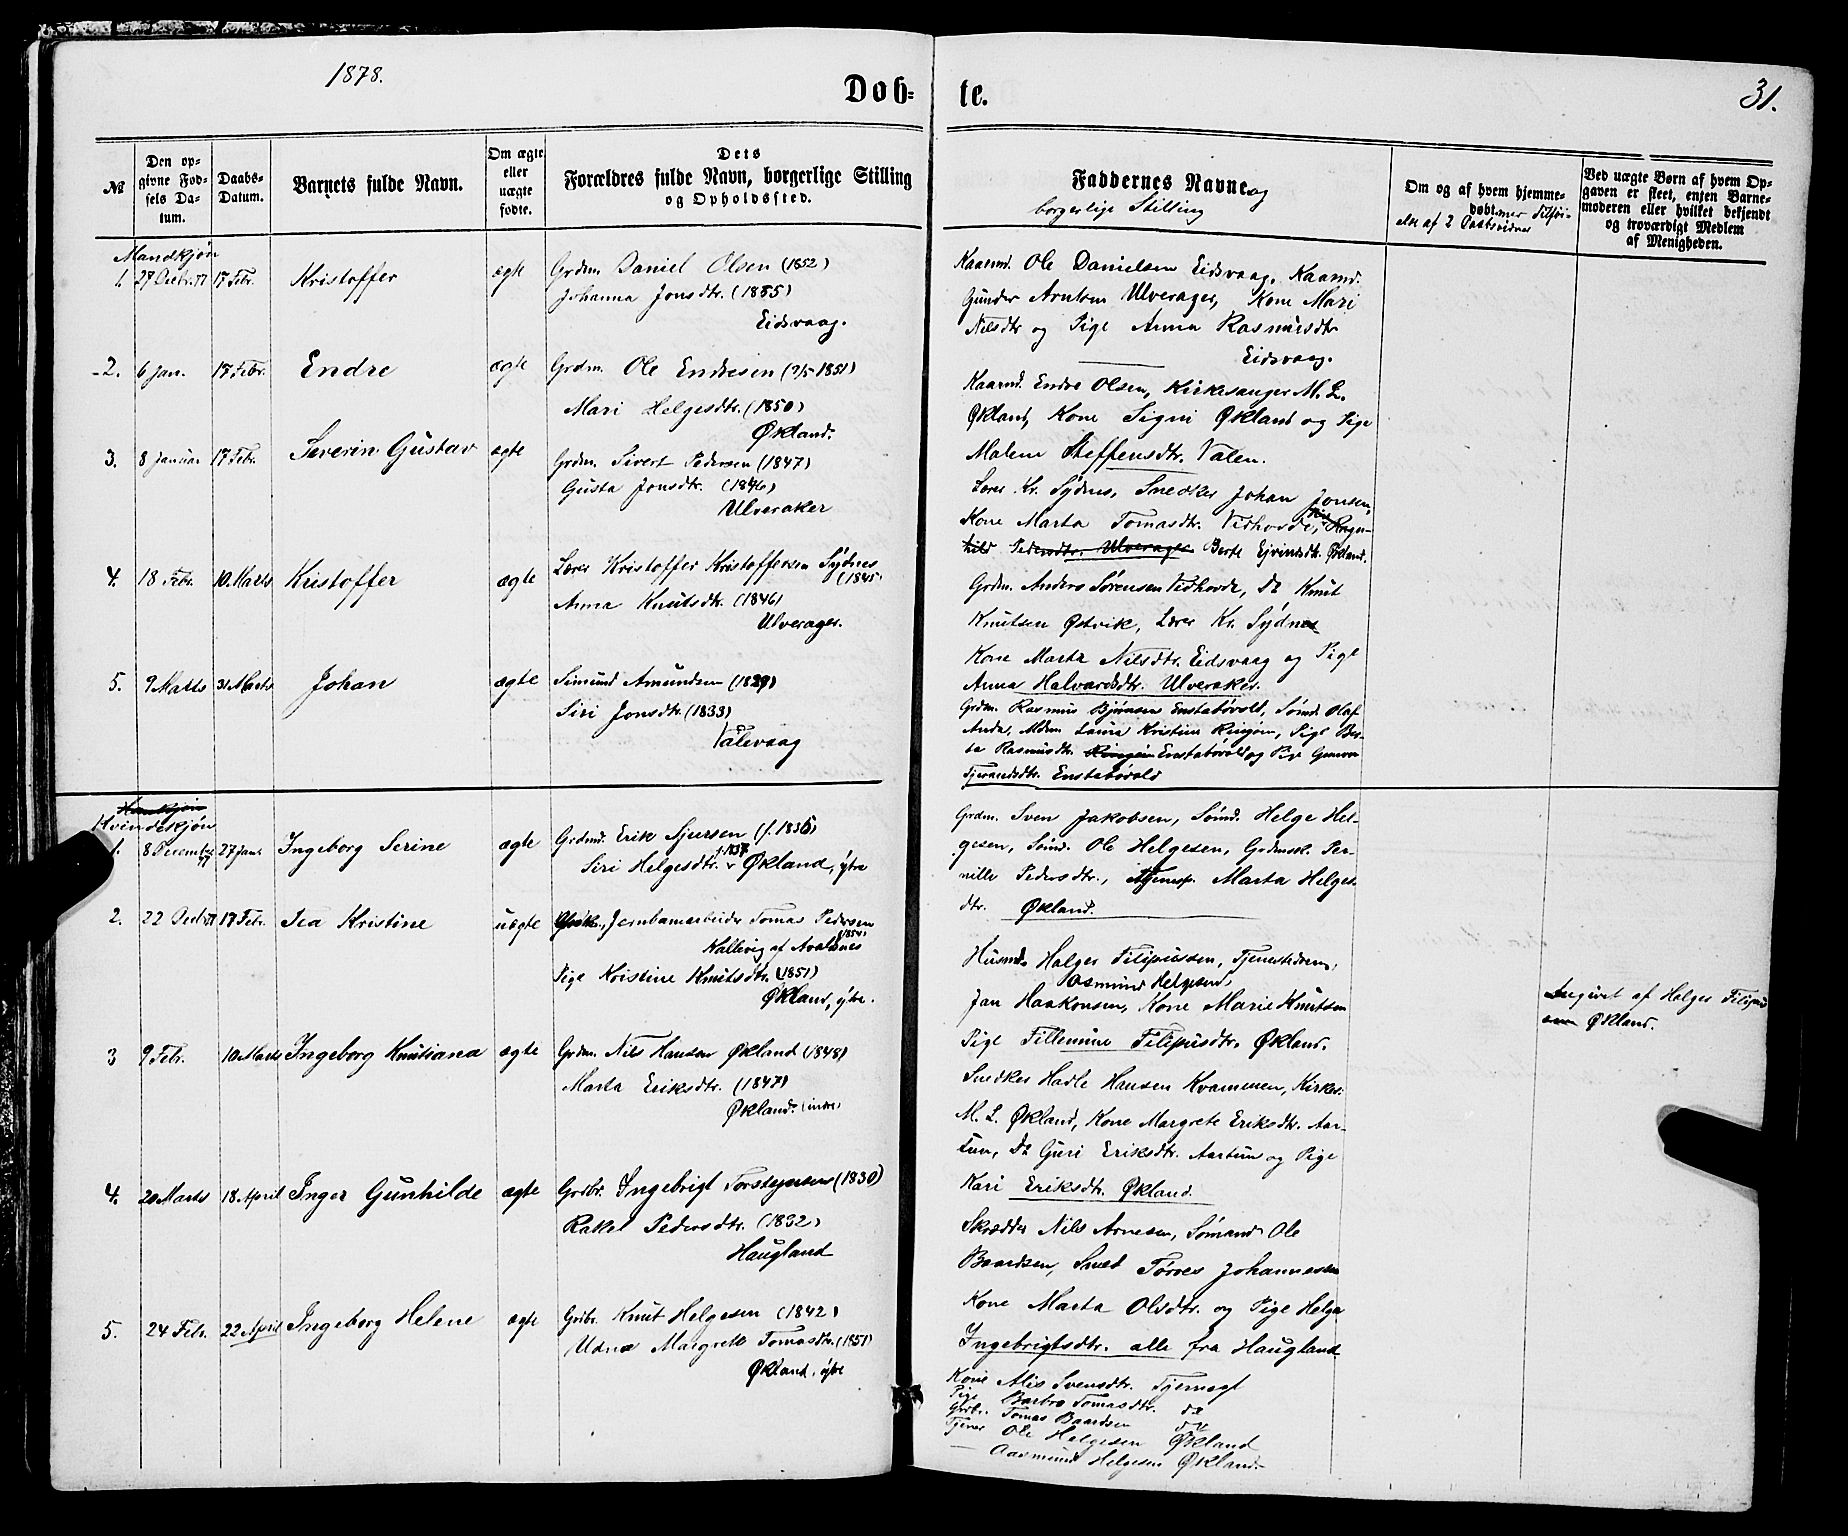 1878.
Døb-
te.
31.
№
Den op-
givne Fød-
sels Da-
tum.
Daabs-
Datum.
Barnets fulde Navn.
Om ægte
eller
uægte
fødte.
Dets
Forældres fulde Navn, borgerlige Stilling
og Opholdssted.
Faddernes Navne og
borgerlige Stilling
Om og af hvem hjemme-
døbt
else af 2 Daabsvidner
Ved uægte Børn af hvem Op-
gaven er skeet, enten Barne-
moderen eller hvilket bekjendt
og troværdigt Medlem
af Menigheden.
Mandkjøn
1. 27 Decbr. 77 17 Febr. Kristoffer ægte Grdm. Daniel Olsen (1852)
Johanna Jonsdtr. (1855)
Eidsvaag.
Kaarmd. Ole Danielsen Eidsvaag, Kaarmd.
Gunder Arntsen Ulverager, Kone Mari
Nilsdtr og Pige Anna Rasmusdtr
Eidsvaag.
2. 6 Jan. 17 Febr. Endre ægte Grdm. Ole Endresen (9/5 1851)
Mari Helgesdtr. (1850)
Økland.
Kaarmd. Endre Olsen, Kirkesanger M. L.
Økland, Kone Signi Økland og Pige
Malene Steffensdtr. Valen.
3. 8 Januar 17 Febr. Severin Gustav ægte Grdm. Sivert Pedersen (1847)
Gusta Jonsdtr. (1846)
Ulveraker
Lærer Kr. Sydnes, Snedker Johan Jonsen,
Kone Marta Tomasdtr. Vidhovde, Pige Ragn-
hild Pedersdtr. Ulverager Berte Ejvindsdt. Økland.
4. 18 Febr. 10 Marts Kristoffer ægte Lærer Kristoffer Kristoffersen Sydnes
(1845)
Anna Knutsdtr. (1846)
Ulverager.
Grdm. Anders Sørensen Vidhovde, Do Knut
Knutsen Østvik, Lærer Kr. Sydnes
Kone Marta Nilsdtr. Eidsvaag og Pige
Anna Halvardsdtr. Ulveraker.
5. 9 Marts 31 Marts Johan ægte Simund Amundsen (1829)
Siri Jonsdtr. (1833)
Valevaag
Grdm. Rasmus Bjørnsen Enstabøvold, Sømd. Olaf
Anda, Mdm Laura Kristine Ringøen, Pige Ber-
ta Rasmusdtr. Ringøen Enstabøvold og Pige Gunvor
Tjerandsdtr. Enstabøvold
Hankjøn
Kvindekjøn
1. 8 December 77 27 Jan. Ingeborg Serine ægte Grdmd. Erik Sjursen (f. 1835)
Siri Helgesdtr. f. 1837 Økland, ytre
Grdm. Sven Jakobsen, Sømd. Helge Hel-
gesen, Sømd. Ole Helgesen, Grdmsk. Per-
nille Pedersdtr., Tjenesp. Marta Helges-
dtr. Økland.
2. 22 Decbr 77 17 Febr. Tea Kristine uægte Jernbanearbeider Tomas Pedersen
Hallevig af Avaldsnes
(1854)
Pige Kristine Knutsdtr. (1851)
Økland, ytre.
Husmd. Helger Filipussen, Tjenestedreng
Osmund Helgesen,
Jan Haakonsen, Kone Marie Knutsen
Pige Fillemine Filipusdtr. Økland.
Angivet af Helger Filipus
sen Økland.
3 9 Febr. 10 Marts Ingeborg Knutiana ægte Grdm. Nils Hansen Økland (1848)
Marta Eriksdtr. (1847)
Økland. (indre)
Snedker Hadle Hansen Kvammen, Kirkes.
M. L. Økland, Kone Margrete Eriksdtr. Aar-
tun, Do Guri Eriksdtr. Aartun og Pige
Kari Eriksdtr. Økland.
4. 20 Marts 18 April Inger Gunhilde ægte Grdbr. Ingebrigt Torsteinsen (1830)
Rakel Pedersdtr. (1832)
Haugland
Skrædder Nils Arnesen, Sømand Ole
Baardsen, Smed Torres Johannessen
Kone Marta Olsdtr. og Pige Helga
Ingebrigtsdtr. alle fra Haugland
5. 24 Febr. 22 April Ingeborg Helene ægte Grdbr. Knut Helgesen (1842)
Udna Margrete Tomasdtr. (1851)
Økland, ytre
Kone Alis Svensdtr. Tjernagl
Pige Barbro Tomasdtr. do
Grdbr. Tomas Baardsen do
Tjener Ole Helgesen Økland
— Aasmund Helgesen Økland.